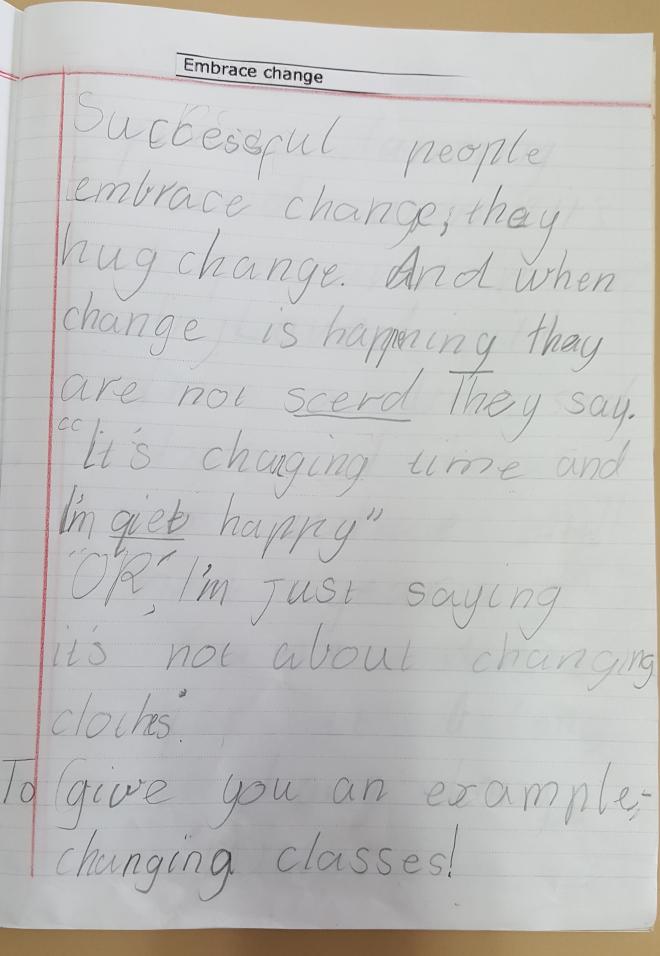 Embrace change
Successful people
embrace change, they
hug change. And when
change is happening they
are not scerd They say.
"It's changing time and
I'm qiet happy"
"OR", I'm just saying
it's not about changing
cloches".
To give you an example,-
changing classes!